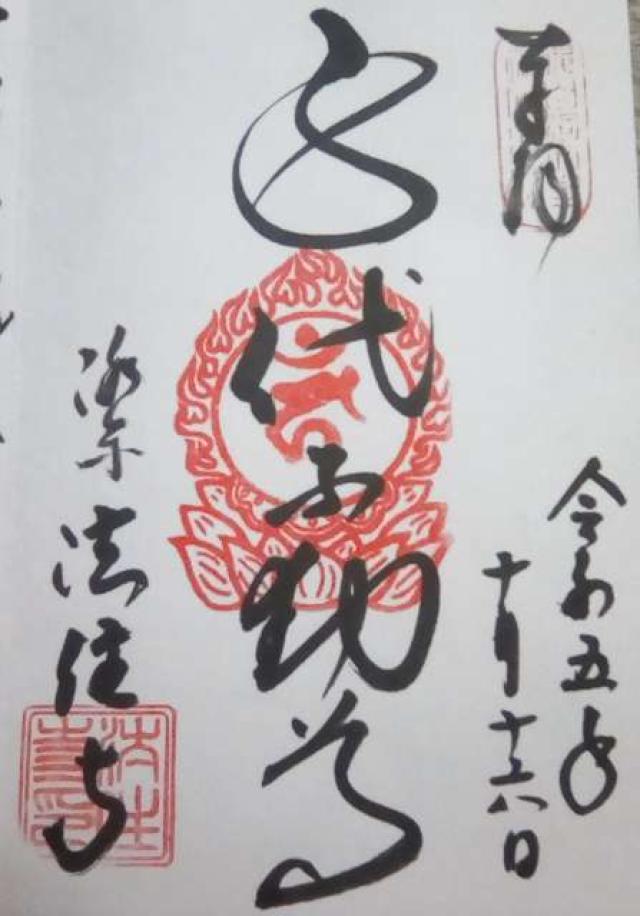 奉拝
令和五年
十月十六日
身代不動尊
洛東 法住寺
法住寺印